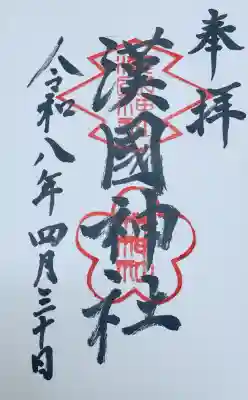 奉拝
漢國神社
令和八年四月三十日